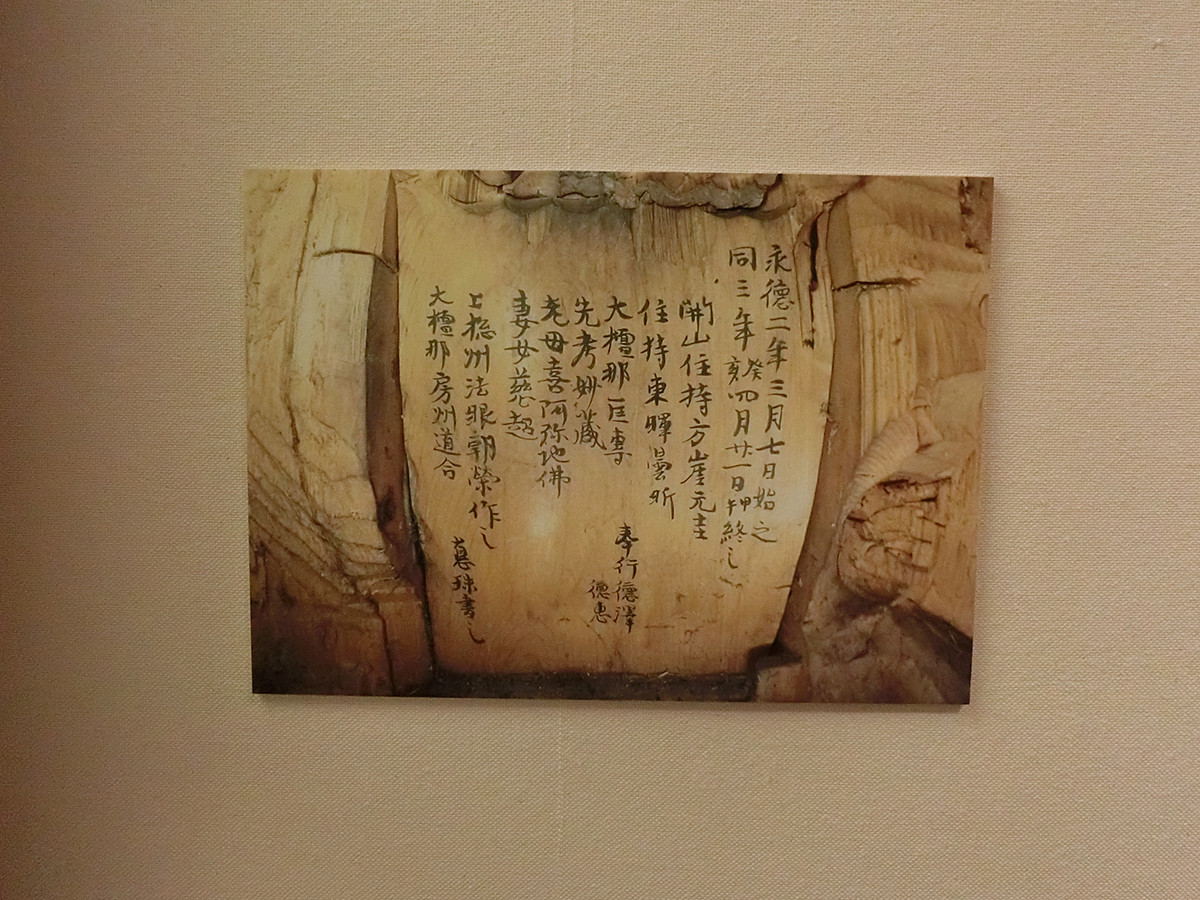 永德二年三月七日始之
同三年癸亥四月廿一日甲午終之
開山住持方崖元圭
住持東暉曇昕
大檀那巨專
奉行德澤
德惠
先考妙藏
老母喜阿弥地佛
妻女慈超
上総州法眼朝榮作之
慕珠書之
大檀那房州道合